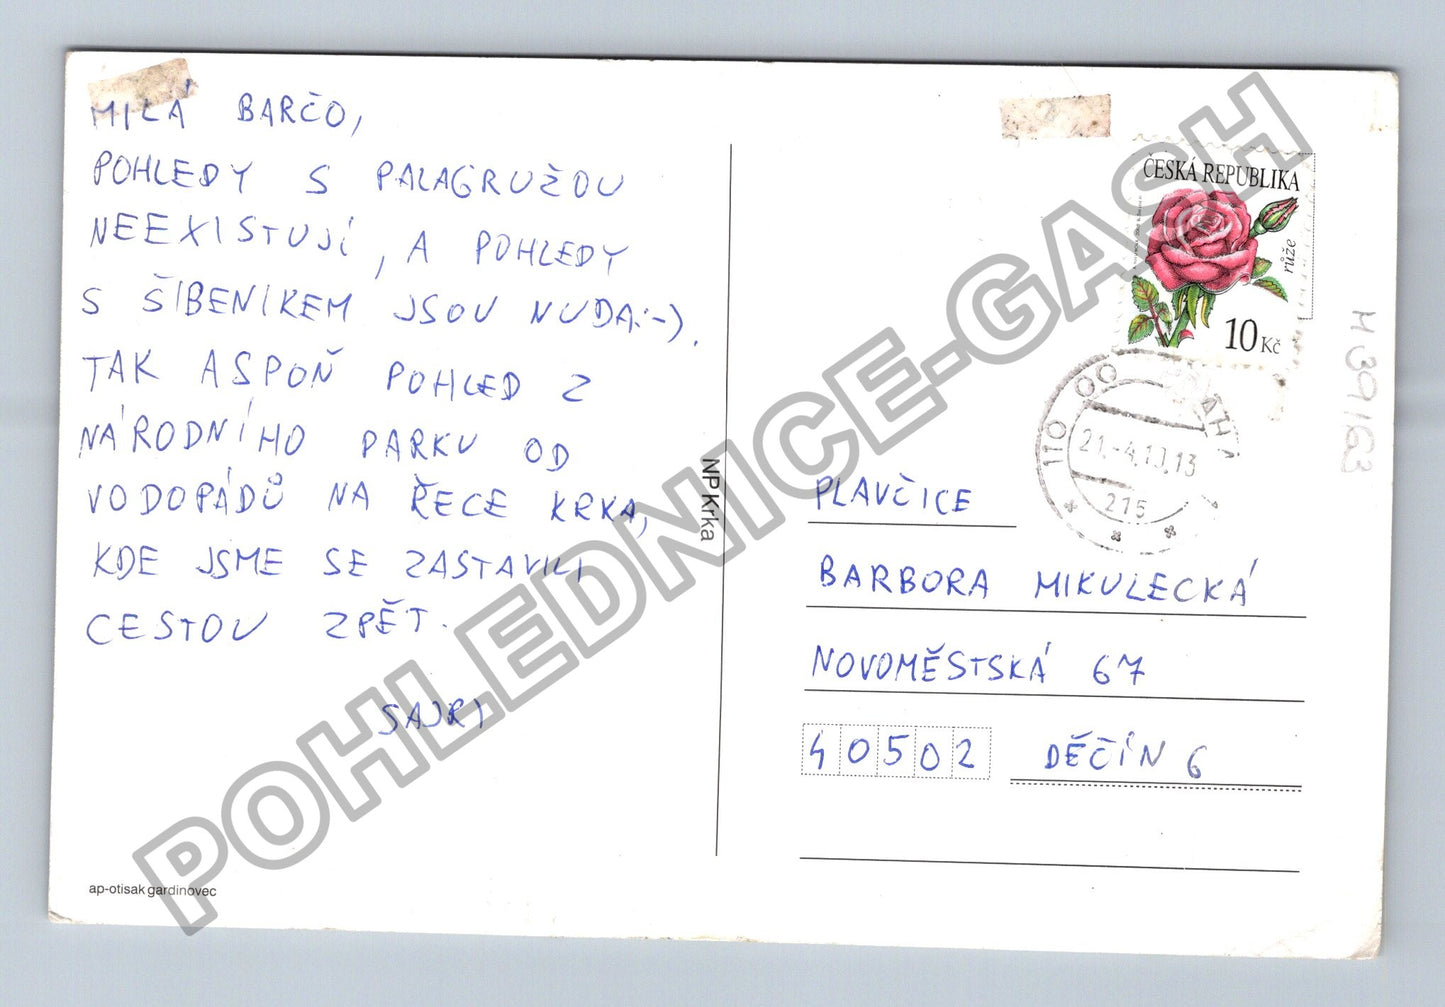 MILÁ BARČO,
POHLEDY S PALAGRUŽOU
NEEXISTUJÍ, A POHLEDY
S ŠIBENIKEM JSOU NUDA:-).
TAK ASPOŇ POHLED Z
NÁRODNÍHO PARKU OD
VODOPÁDŮ NA ŘECE KRKA,
KDE JSME SE ZASTAVILI
CESTOU ZPĚT.
SAJRI
ap-otisak gardinovec
NP Krka
ČESKÁ REPUBLIKA
růže
10 Kč
110 00
21.-4.10.13
215
PLAVČICE
BARBORA MIKULECKÁ
NOVOMĚSTSKÁ 67
40502 DĚČÍN 6
POHLEDNICE-GASH